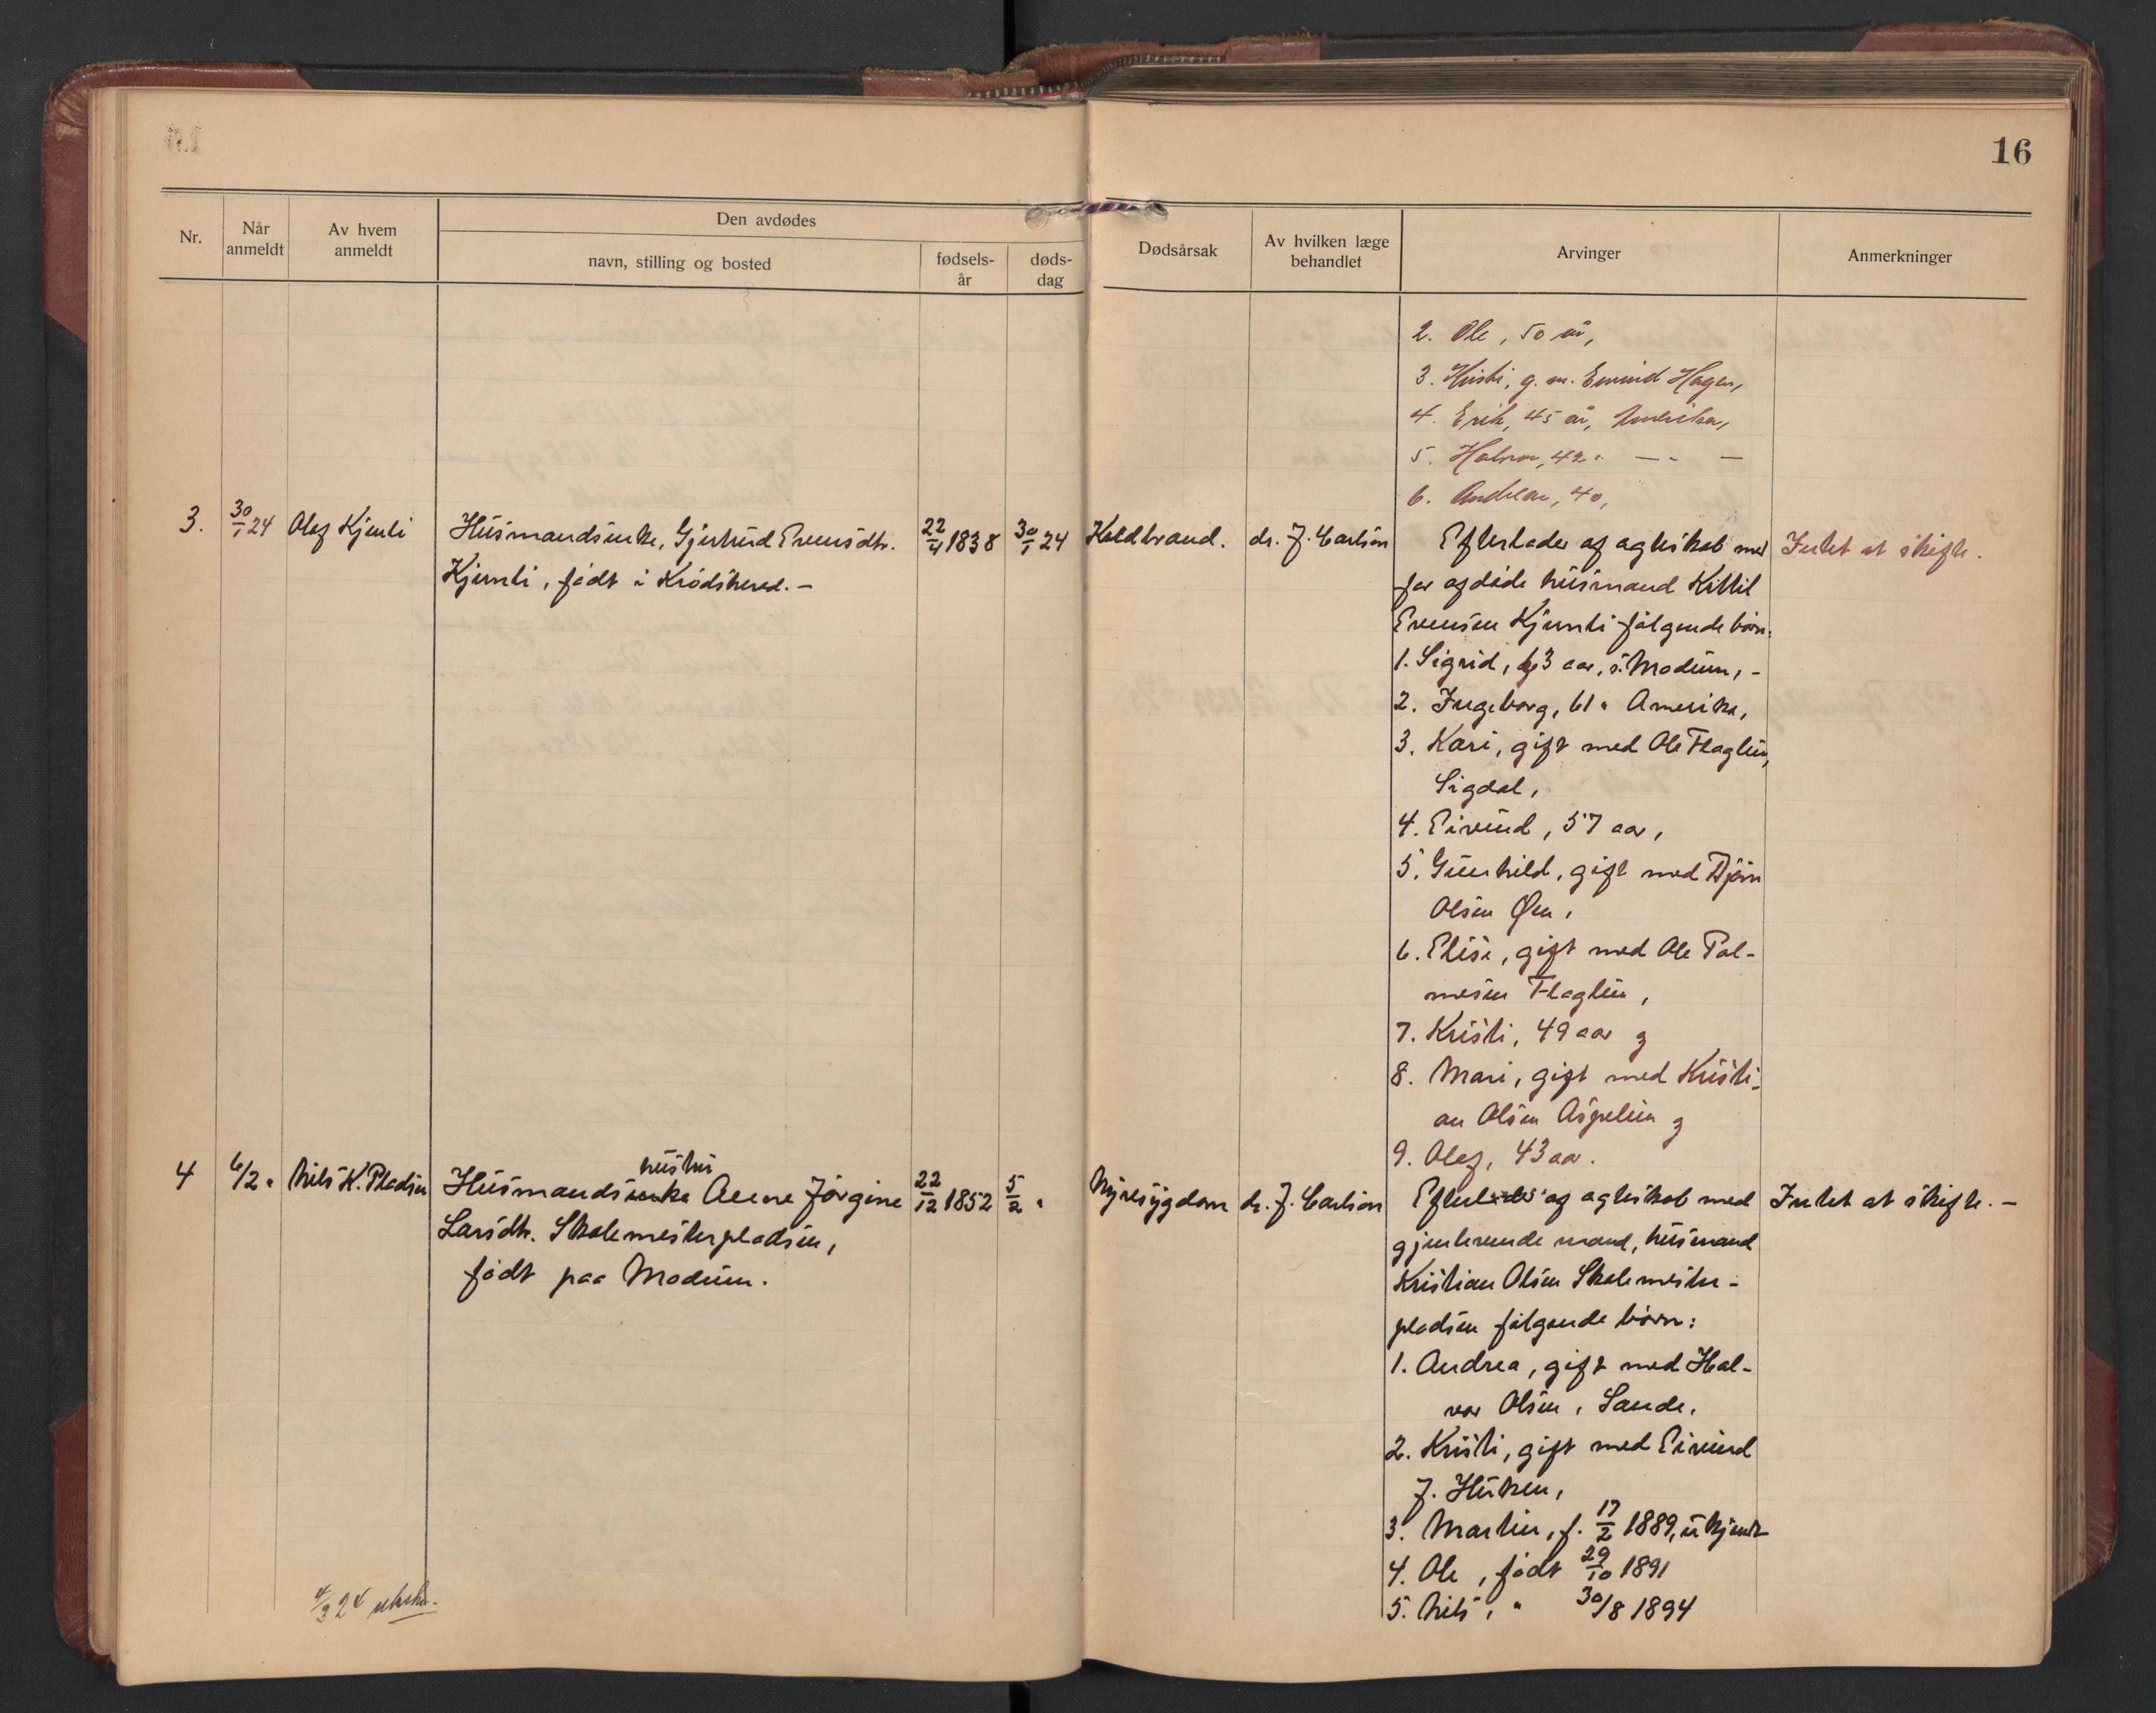 16
Nr.
Når anmeldt
Av hvem anmeldt
Den avdødes
navn, stilling og bosted
fødsels-
år
døds-
dag
Dødsårsak
Av hvilken læge
behandlet
Arvinger
Anmerkninger
2. Ole, 50 år,
3. Kristi, g. m. Eivind Hagen,
4. Erik, 45 år, Amerika,
5. Halvor, 42 " — " —
6. Andreas, 40,
3. 30/1 24 Olaf Kjenli Husmandsenke, Gjertrud Evensdtr. 22/4 1838 30/1 24 Koldbrand. dr. J. Carlson Efterlader af egteskab med Intet at skifte.
Kjemli, født i Krødshered. —
før afdøde husmand Kittil
Evensen Kjemli følgende børn:
1. Sigrid, 63 aar, i Modum, -
2. Ingeborg, 61 " Amerika,
3. Kari, gift med Ole Flaglien,
Sigdal,
4. Eivind, 57 aar,
5. Gunhild, gift med Bjørn
Olsen Øen,
6. Elise, gift med Ole Pal-
mesen Flaglien,
7. Kristi, 49 aar og
8. Mari, gift med Kristi-
an Olsen Aspelien og
9. Olaf, 43 aar.
hustru
4 6/2 " Nils K. Pladsen Husmandsenke Anne Jørgine 22/12 1852 5/2 " Nyresygdom dr. J. Carlson Efterlades af egteskab med Intet at skifte. —
Larsdtr. Skolemesterpladsen,
født paa Modum.
gjenlevende mand, husmand
Kristian Olsen Skolemester-
pladsen følgende børn:
1. Andrea, gift med Hal-
vor Olsen, Sande,
2. Kristi, gift med Eivind
J. Huken,
3. Martin, f. 17/2 1889, ukjendt
4. Ole, født 29/10 1891
5. Nils, " 30/8 1894
4/3 24